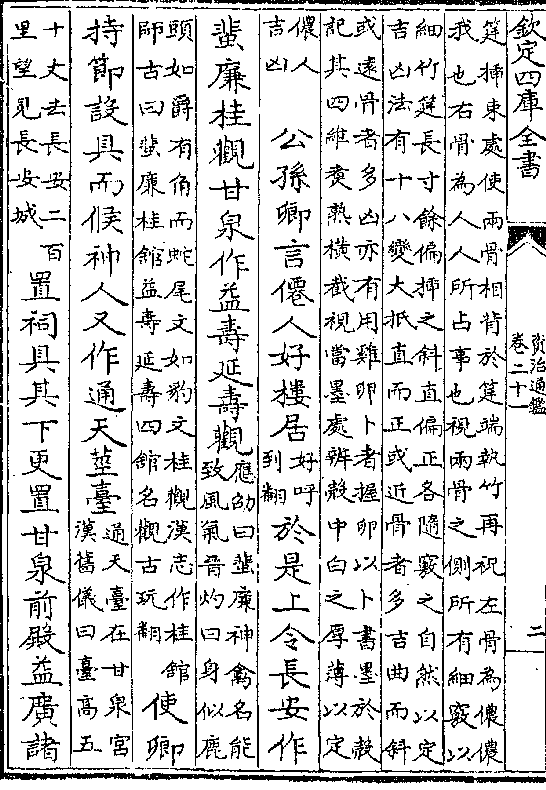 欽定四庫全書
資治通鑑
卷二十一
二
筳揷束處使兩骨相背於筳端執竹再祝左骨為儂儂
我也右骨為人人所占事也視兩骨之側所有細竅以
細竹筳長寸餘偏揷之斜直偏正各隨竅之自然以定
吉凶法有十八變大抵直而正或近骨者多吉曲而斜
或遠骨者多凶亦有用雞卵卜者握卵以卜書墨於殼
記其四維煑熟橫截視當墨處辨殼中白之厚薄以定
儂人
吉凶
公孫卿言僊人好樓居
好呼
到翻
於是上令長安作
蜚廉桂觀甘泉作益壽延壽觀
應劭曰蜚廉神禽名能
致風氣晉灼曰身似鹿
頭如爵有角而蛇尾文如豹文桂觀漢志作桂館
師古曰蜚廉桂館益壽延壽四館名觀古玩翻
使卿
持節設具而候神人又作通天莖臺
通天臺在甘泉宫
漢舊儀曰臺高五
十丈去長安二百
里望見長安城
置祠具其下更置甘泉前殿益廣諸